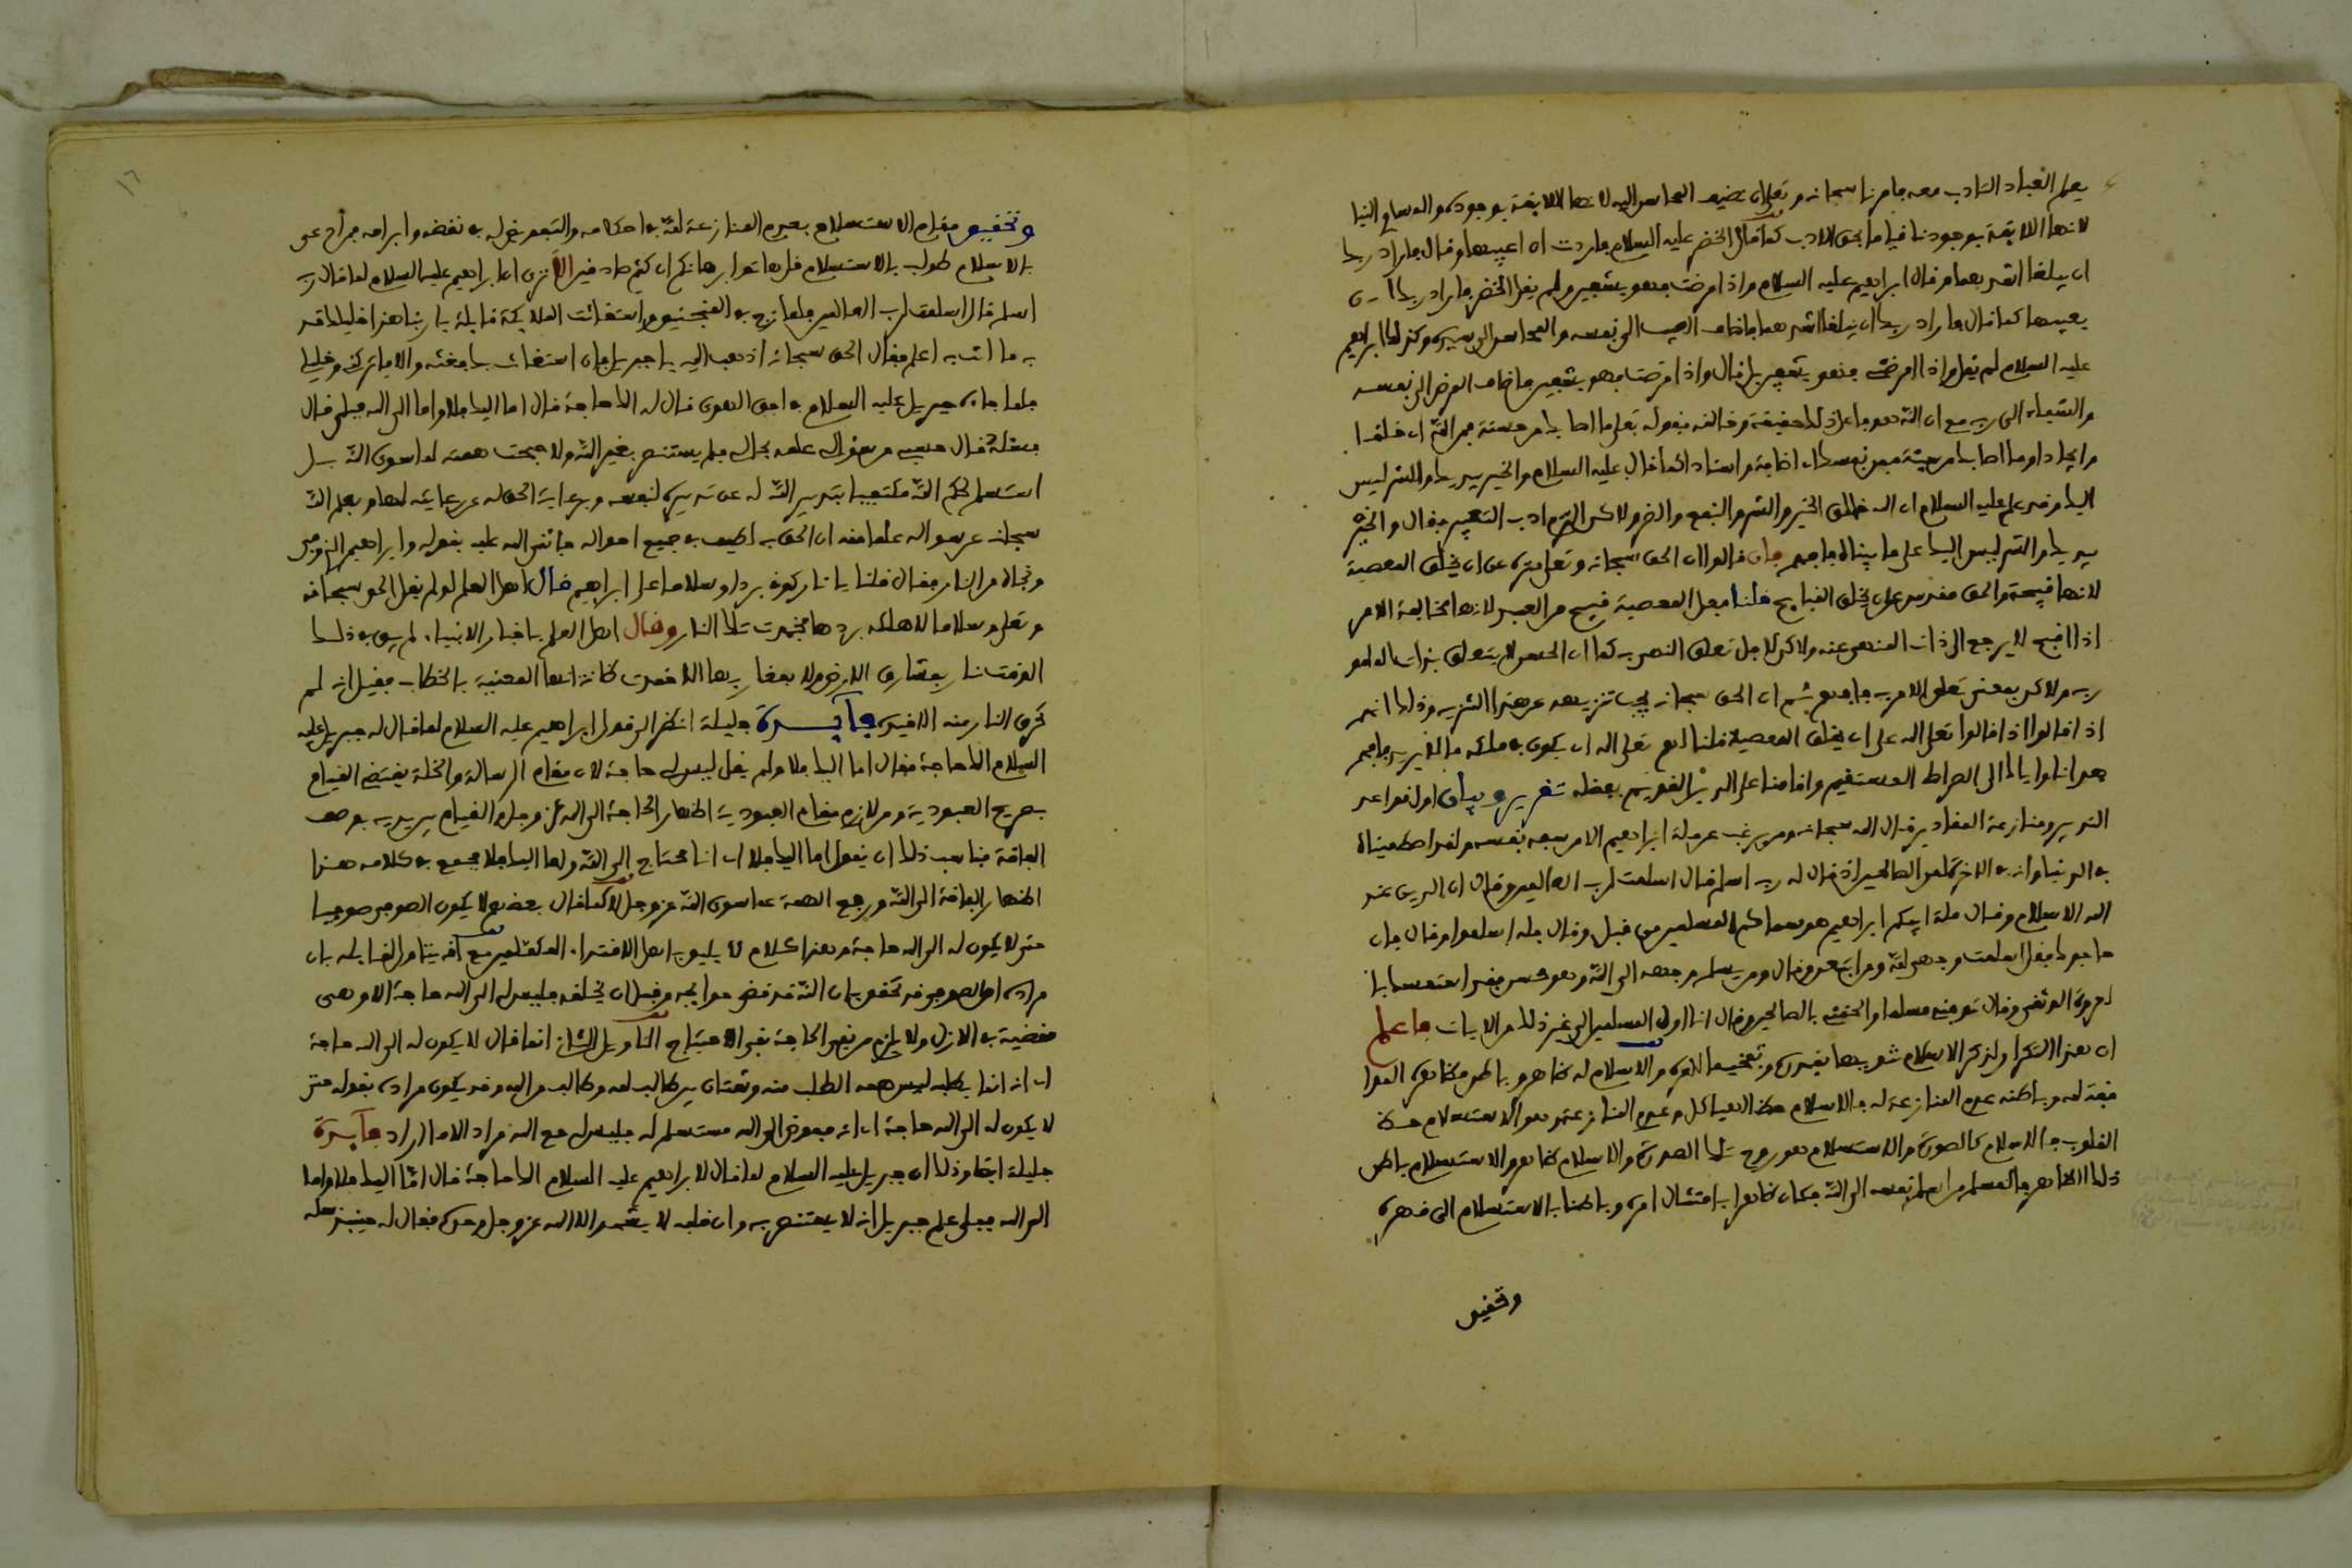 يعلم العباد التادب معه فامرنا سبحانه وتعلى ان نضيف المحاسن اليه لانها اللايقة بوجوده والمساوي الينا
لانها اللايقة بوجودنا قياما بحق الادب كما قال الخضر عليه السلام فاردت ان اعيبها وقال فاراد ربك
ان يبلغا اشدهما وقال ابراهيم عليه السلام واذا مرضت فهو يشفين ولم يقل الخضر فاراد ربك ان
يعيبها كما قال فاراد ربك ان يبلغا اشدهما فاضاف العيب الى نفسه والمحاسن الى سيده وكذلك ابراهيم
عليه السلام لم يقل واذا امرضني فهو يشفين بل قال واذا مرضت فهو يشفين فاضاف المرض الى نفسه
والشفاء الى ربه مع ان الله هو فاعل ذلك حقيقة وخالقه فقوله تعلى ما اصابك من حسنة فمن الله اي خلقا
وايجادا وما اصابك من سيئة فمن نفسك اي اضافة واسنادا كما قال عليه السلام والخير بيديك والشر ليس
اليك وقد علم عليه السلام ان الله خالق الخير والشر والنفع والضر ولاكن التزم ادب التعبير فقال والخير
بيديك والشر ليس اليك على ما بيناه فافهم فان قالوا ان الحق سبحانه وتعلى منزه عن ان يخلق المعصية
لانها قبيحة والحق مقدس عن ان يخلق القبايح قلنا فعل المعصية قبيح من العبد لانها مخالفة الامر
اذا القبح لا يرجع الى ذات المنهي عنه ولاكن لاجل تعلق النهي به كما ان الحسن لا يتعلق بذات المامور
به ولاكن بمعنى تعلق الامر به فافهم ثم ان الحق سبحانه يجب تنزيهه عن هذا التنزيه وذلك انهم
اذا قالوا اذا قالوا تعلى الله على ان يخلق المعصية قلنا لهم تعلى الله ان يكون في ملكه ما لا يريد فافهم
هدانا الله واياك الى الصراط المستقيم واقامنا على الدين القويم بفضله تقرير وبيان اول قواعد
التدبير ومنازعة المقادير قال الله سبحانه ومن يرغب عن ملة ابراهيم الا من سفه نفسه ولقد اصطفيناه
في الدنيا وانه في الاخرة لمن الصالحين اذ قال له ربه اسلم قال اسلمت لرب العالمين وقال ان الدين عند
الله الاسلام وقال ملة ابيكم ابراهيم هو سماكم المسلمين من قبل وقال فله اسلموا وقال فان
حاجوك فقل اسلمت وجهي لله ومن اتبعن وقال ومن يسلم وجهه الى الله وهو محسن فقد استمسك با
لعروة الوثقى وقال توفني مسلما والحقني بالصالحين وقال انا اول المسلمين الى غير ذلك من الايات فاعلم
ان هذا التكرار لذكر الاسلام تنويها بقدره وتفخيما لامره والاسلام له ظاهر وباطن فظاهره الموا
فقة له وباطنه عدم المنازعة له فالاسلام حظ الهياكل وعدم المنازعة وهو الاستسلام حظ
القلوب فالاسلام كالصورة والاستسلام هو روح تلك الصورة والاسلام ظاهر والاستسلام باطن
ذلك الظاهر فالمسلم من اسلم نفسه الى الله فكان ظاهرا بامتثال امره وباطنا بالاستسلام الى قهره
وتحقيق
١٦
وتحقيق مقام الاستسلام بعدم المنازعة لله في احكامه والتفويض له في نقضه وابرامه فمن ادعى
الاسلام طولب بالاستسلام قل هاتوا برهانكم ان كنتم صادقين الا ترى ان ابراهيم عليه السلام لما قال ربه
اسلم قال اسلمت لرب العالمين فلما زج به في المنجنيق واستغاثت الملايكة قايلة يا ربنا هذا خليلك قد
به ما انت به اعلم فقال الحق سبحانه اذهب اليه يا جبريل فان استغاث بك فاغثه والا فاتركني وخليلي
فلما جاءه جبريل عليه السلام في افق الهوى قال له الك حاجة قال اما اليك فلا واما الى الله فبلى قال
فسئله قال حسبي من سؤالي علمه بحالي فلم يستنصر بغير الله ولا جنحت همته لما سوى الله بل
استسلم لحكم الله مكتفيا بتدبير الله له عن تدبيره لنفسه وبرعاية الحق له عن رعايته لها وبعلم الله
سبحانه عن سواله علما منه ان الحق به لطيف في جميع احواله فاثنى الله عليه بقوله وابراهيم الذي وفى
ونجاه من النار فقال قلنا يا نار كوني بردا وسلاما على ابراهيم قال اهل العلم لو لم يقل الحق سبحانه
وتعلى وسلاما لاهلكه بردها فخمدت تلك النار وقال اهل العلم باخبار الانبياء لم يبق في ذلك
الوقت نار بمشارق الارض ولا بمغاربها الا خمدت ظانة انها المعنية بالخطاب فقيل انه لم
تحرق النار منه الا قيده فايدة جليلة انظر الى قول ابراهيم عليه السلام لما قال له جبريل عليه
السلام الك حاجة فقال اما اليك فلا ولم يقل ليس لي حاجة لان مقام الرسالة والخلة يقتضي القيام
بصريح العبودية ومن لازم مقام العبودية اظهار الحاجة الى الله عز وجل والقيام بين يديه بوصف
الفاقة فناسب ذلك ان يقول اما اليك فلا اي انا محتاج الى الله واما اليك فلا فجمع في كلامه هذا
اظهار الفاقة الى الله ورفع الهمة عما سوى الله عز وجل لا كما قال بعضهم لا يكون الصوفي صوفيا
حتى لا يكون له الى الله حاجة وهذا كلام لا يليق باهل الاقتداء المكملين مع انه يتاول لقايله بان
مراده ان الصوفي قد تحقق بان الله قد قضى حوايجه وقبل ان يخلقه فليس له الى الله حاجة الا وهي
مقضية في الازل ولا يلزم من نفي الحاجة نفي الاحتياج التاويل الثاني انما قال لا يكون له الى الله حاجة
اي انه انما يطلبه ليس همه الطلب منه وشتان بين طالب له وطالب من الله وقد يكون مراده بقوله حتى
لا يكون له الى الله حاجة اي انه مفوض الى الله مستسلم له فليس له مع الله مراد الا ما اراد فايدة
جليلة ايضا وذلك ان جبريل عليه السلام لما قال لابراهيم عليه السلام الك حاجة قال اما اليك فلا واما
الى الله فبلى علم جبريل انه لا يستنصر به وان قلبه لا يشهد الا الله عز وجل وحده فقال له حينئذ سله